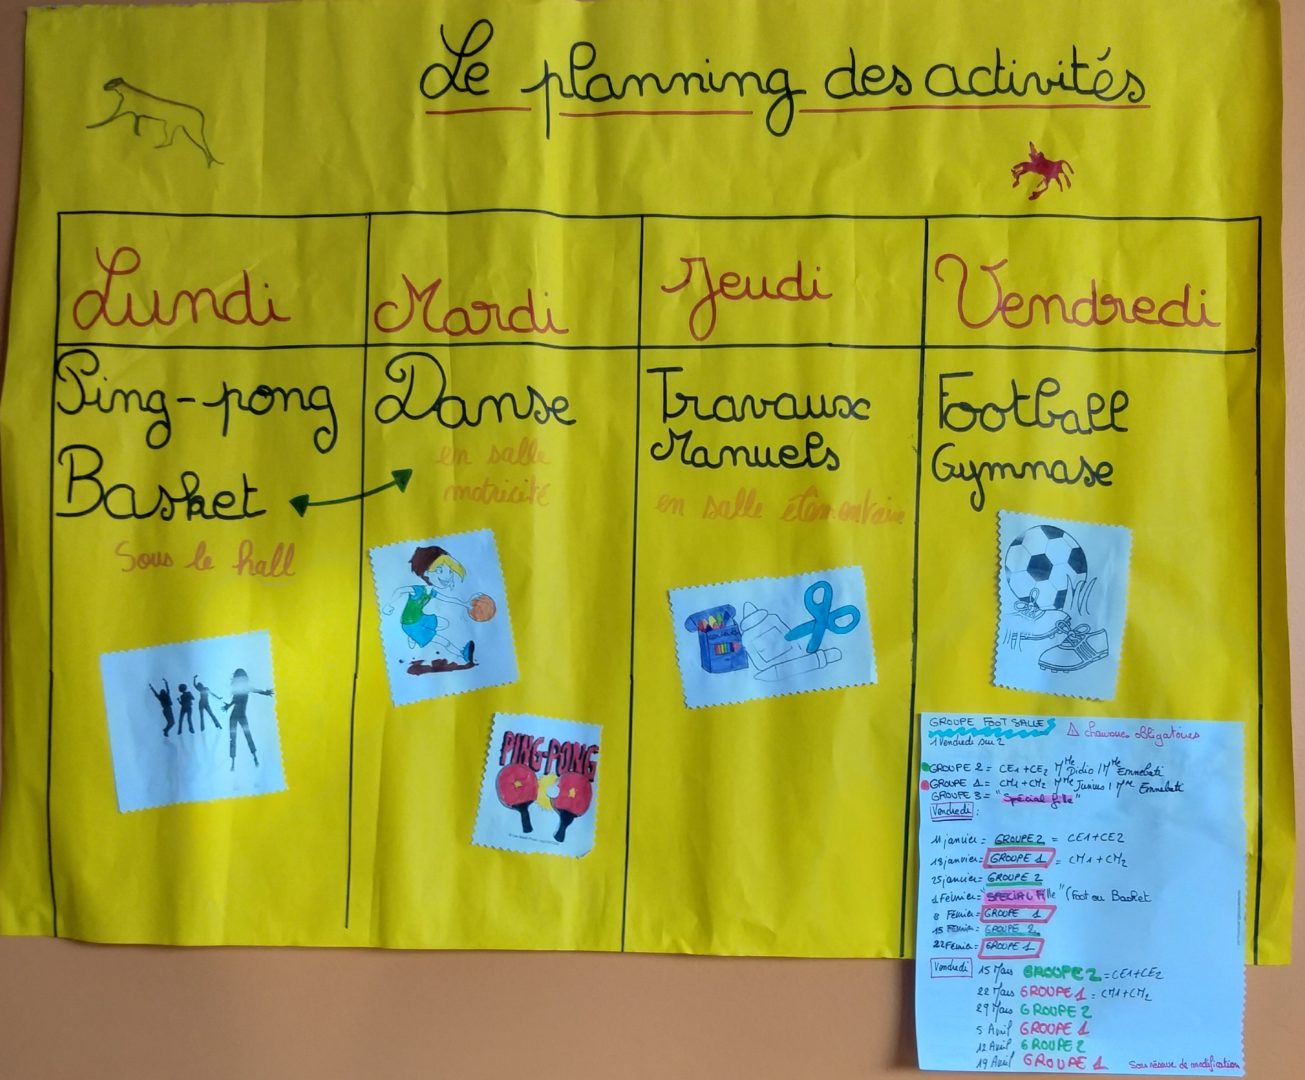 Le planning des activités
Lundi
Mardi
Jeudi
Vendredi
Ping-pong
Basket
Sous le hall
Danse
en salle
motricité
PING-PONG
Travaux
Manuels
en salle élémentaire
Football
Gymnase
GROUPE FOOT SALLE
⚠ chaussures obligatoires
1 Vendredi sur 2
GROUPE 2 = CE1+CE2 Mme Didio / Mme
GROUPE 1 = CM1+CM2 Mme Junius / Mme
GROUPE 3 = "Spécial fille"
Vendredi :
11 janvier = GROUPE 2 = CE1+CE2
18 janvier = GROUPE 1 = CM1+CM2
25 janvier = GROUPE 2
1 Février = "SPECIAL Fille" (Foot ou Basket
8 Février = GROUPE 1
15 Février = GROUPE 2
22 Février = GROUPE 1
Vendredi 15 Mars GROUPE 2 = CE1+CE2
22 Mars GROUPE 1 = CM1+CM2
29 Mars GROUPE 2
5 Avril GROUPE 1
12 Avril GROUPE 2
19 Avril GROUPE 1
Sous réserve de modification